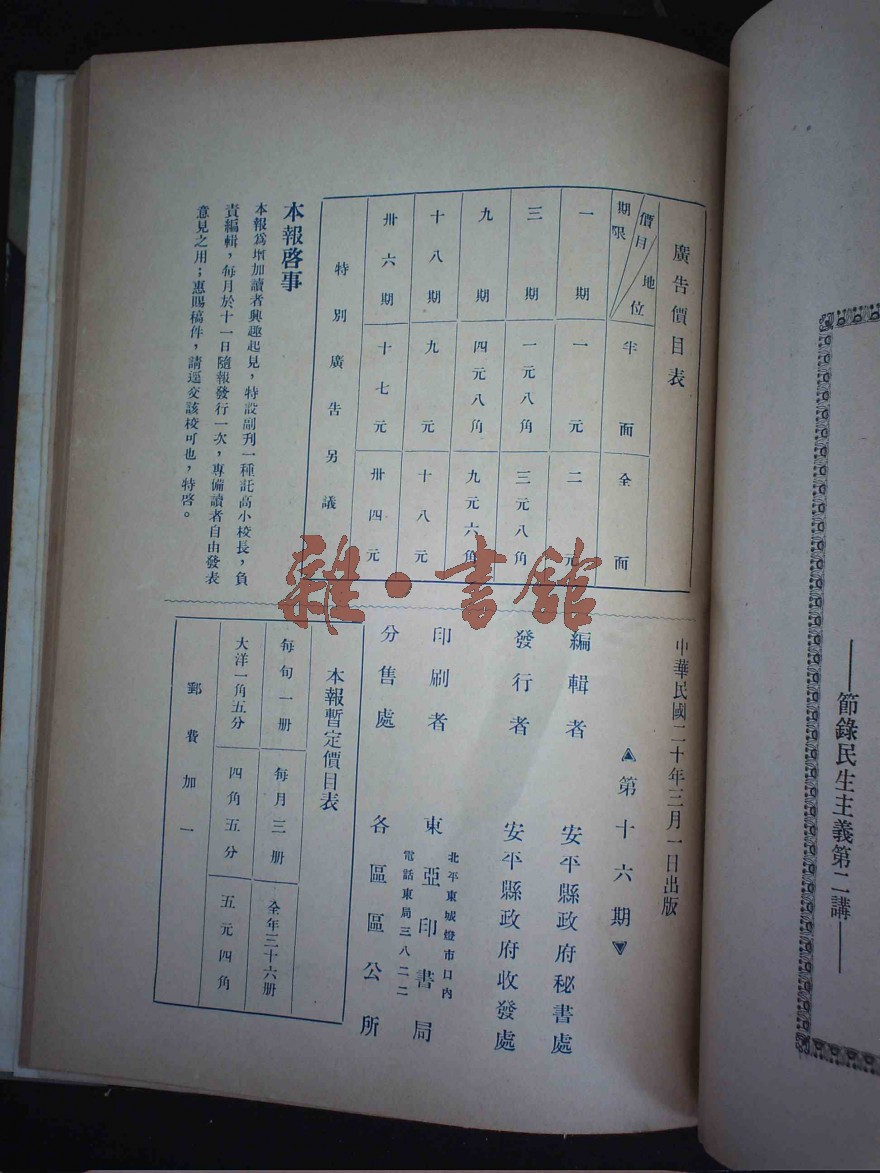 廣告價目表
價目 地位 期限
半面
全面
一期
一元
二元
三期
一元八角
三元八角
九期
四元八角
九元六角
十八期
九元
十八元
卅六期
十七元
卅四元
特別廣告另議
本報啓事
本報爲增加讀者興趣起見，特設副刊一種託高小校長，負
責編輯，每月於十一日隨報發行一次，專備讀者自由發表
意見之用；惠賜稿件，請逕交該校可也，特啓。
中華民國二十年三月一日出版
▲第十六期▼
編輯者 安平縣政府秘書處
發行者 安平縣政府收發處
印刷者 東亞印書局
北平東城燈市口內
電話東局三八二二
分售處 各區區公所
本報暫定價目表
每旬一册
每月三册
全年三十六册
大洋一角五分
四角五分
五元四角
郵費加一
——節錄民生主義第二講——
雜·書館